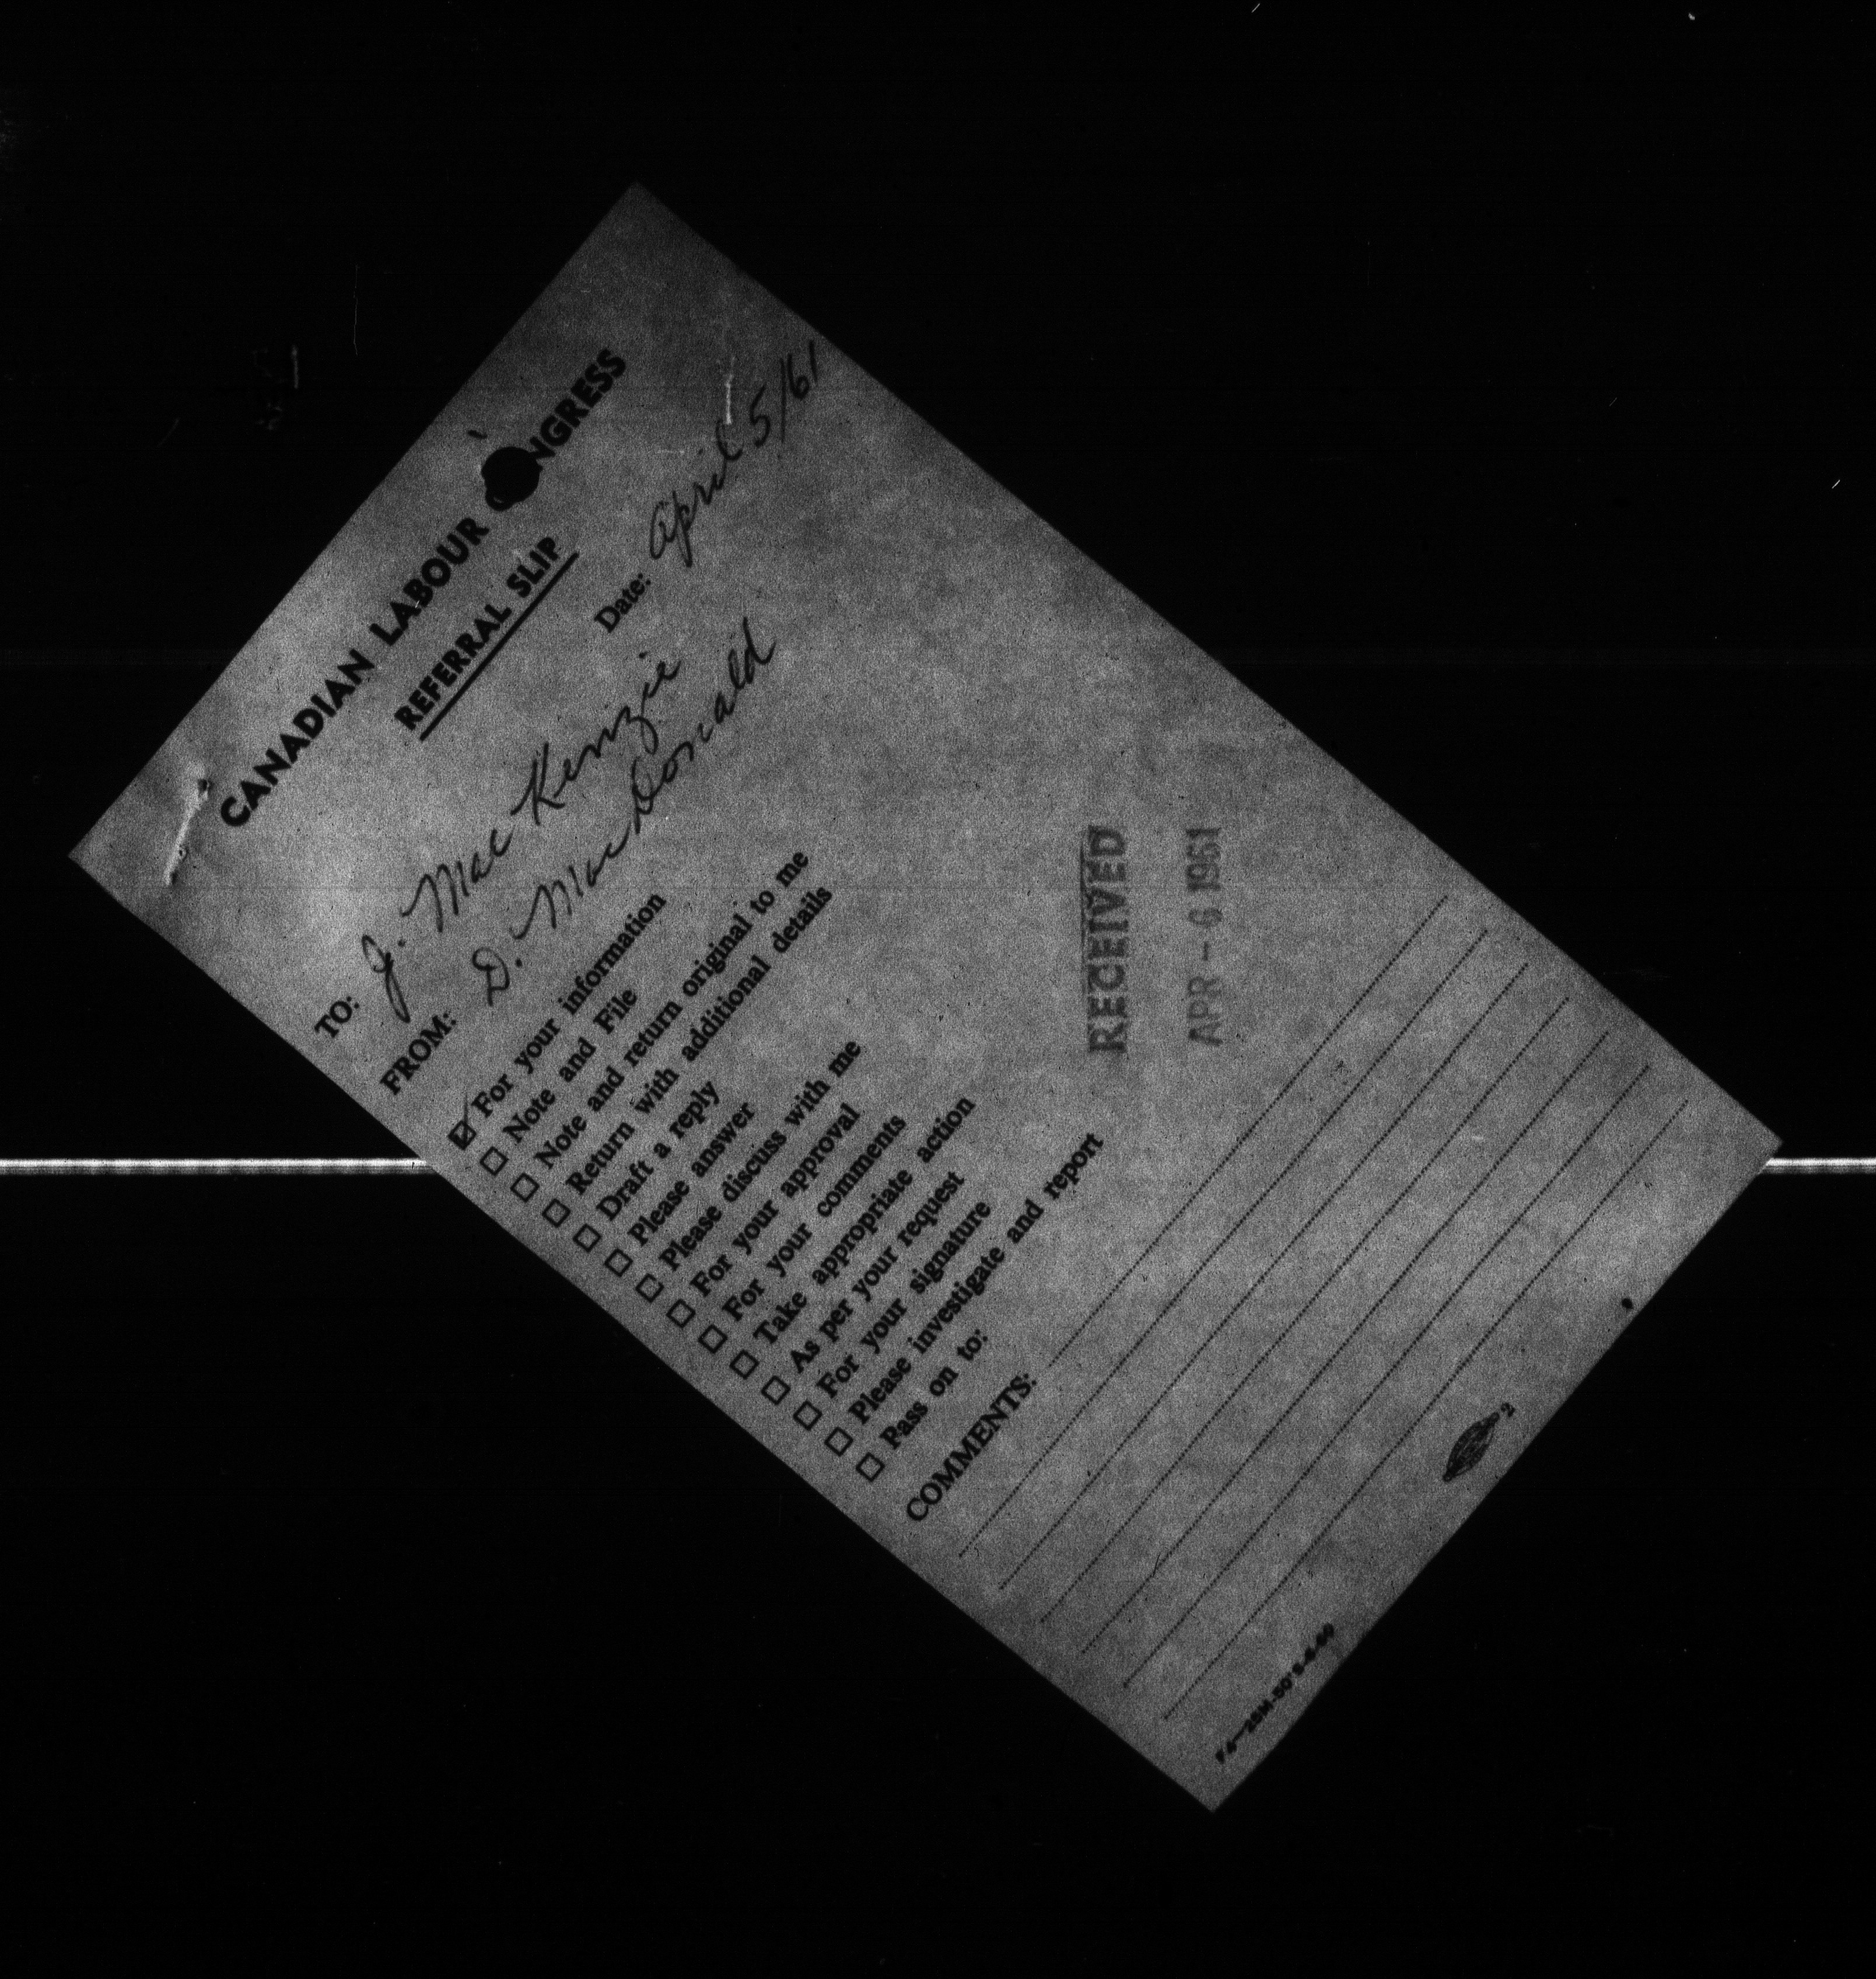 CANADIAN LABOUR CONGRESS
REFERRAL SLIP
Date: April 5/61
TO: J. MacKenzie
FROM: D. MacDonald
☑ For your information
☐ Note and File
☐ Note and return original to me
☐ Return with additional details
☐ Draft a reply
☐ Please answer
☐ Please discuss with me
☐ For your approval
☐ For your comments
☐ Take appropriate action
☐ As per your request
☐ For your signature
☐ Please investigate and report
☐ Pass on to:
RECEIVED
APR - 6 1961
COMMENTS:
2